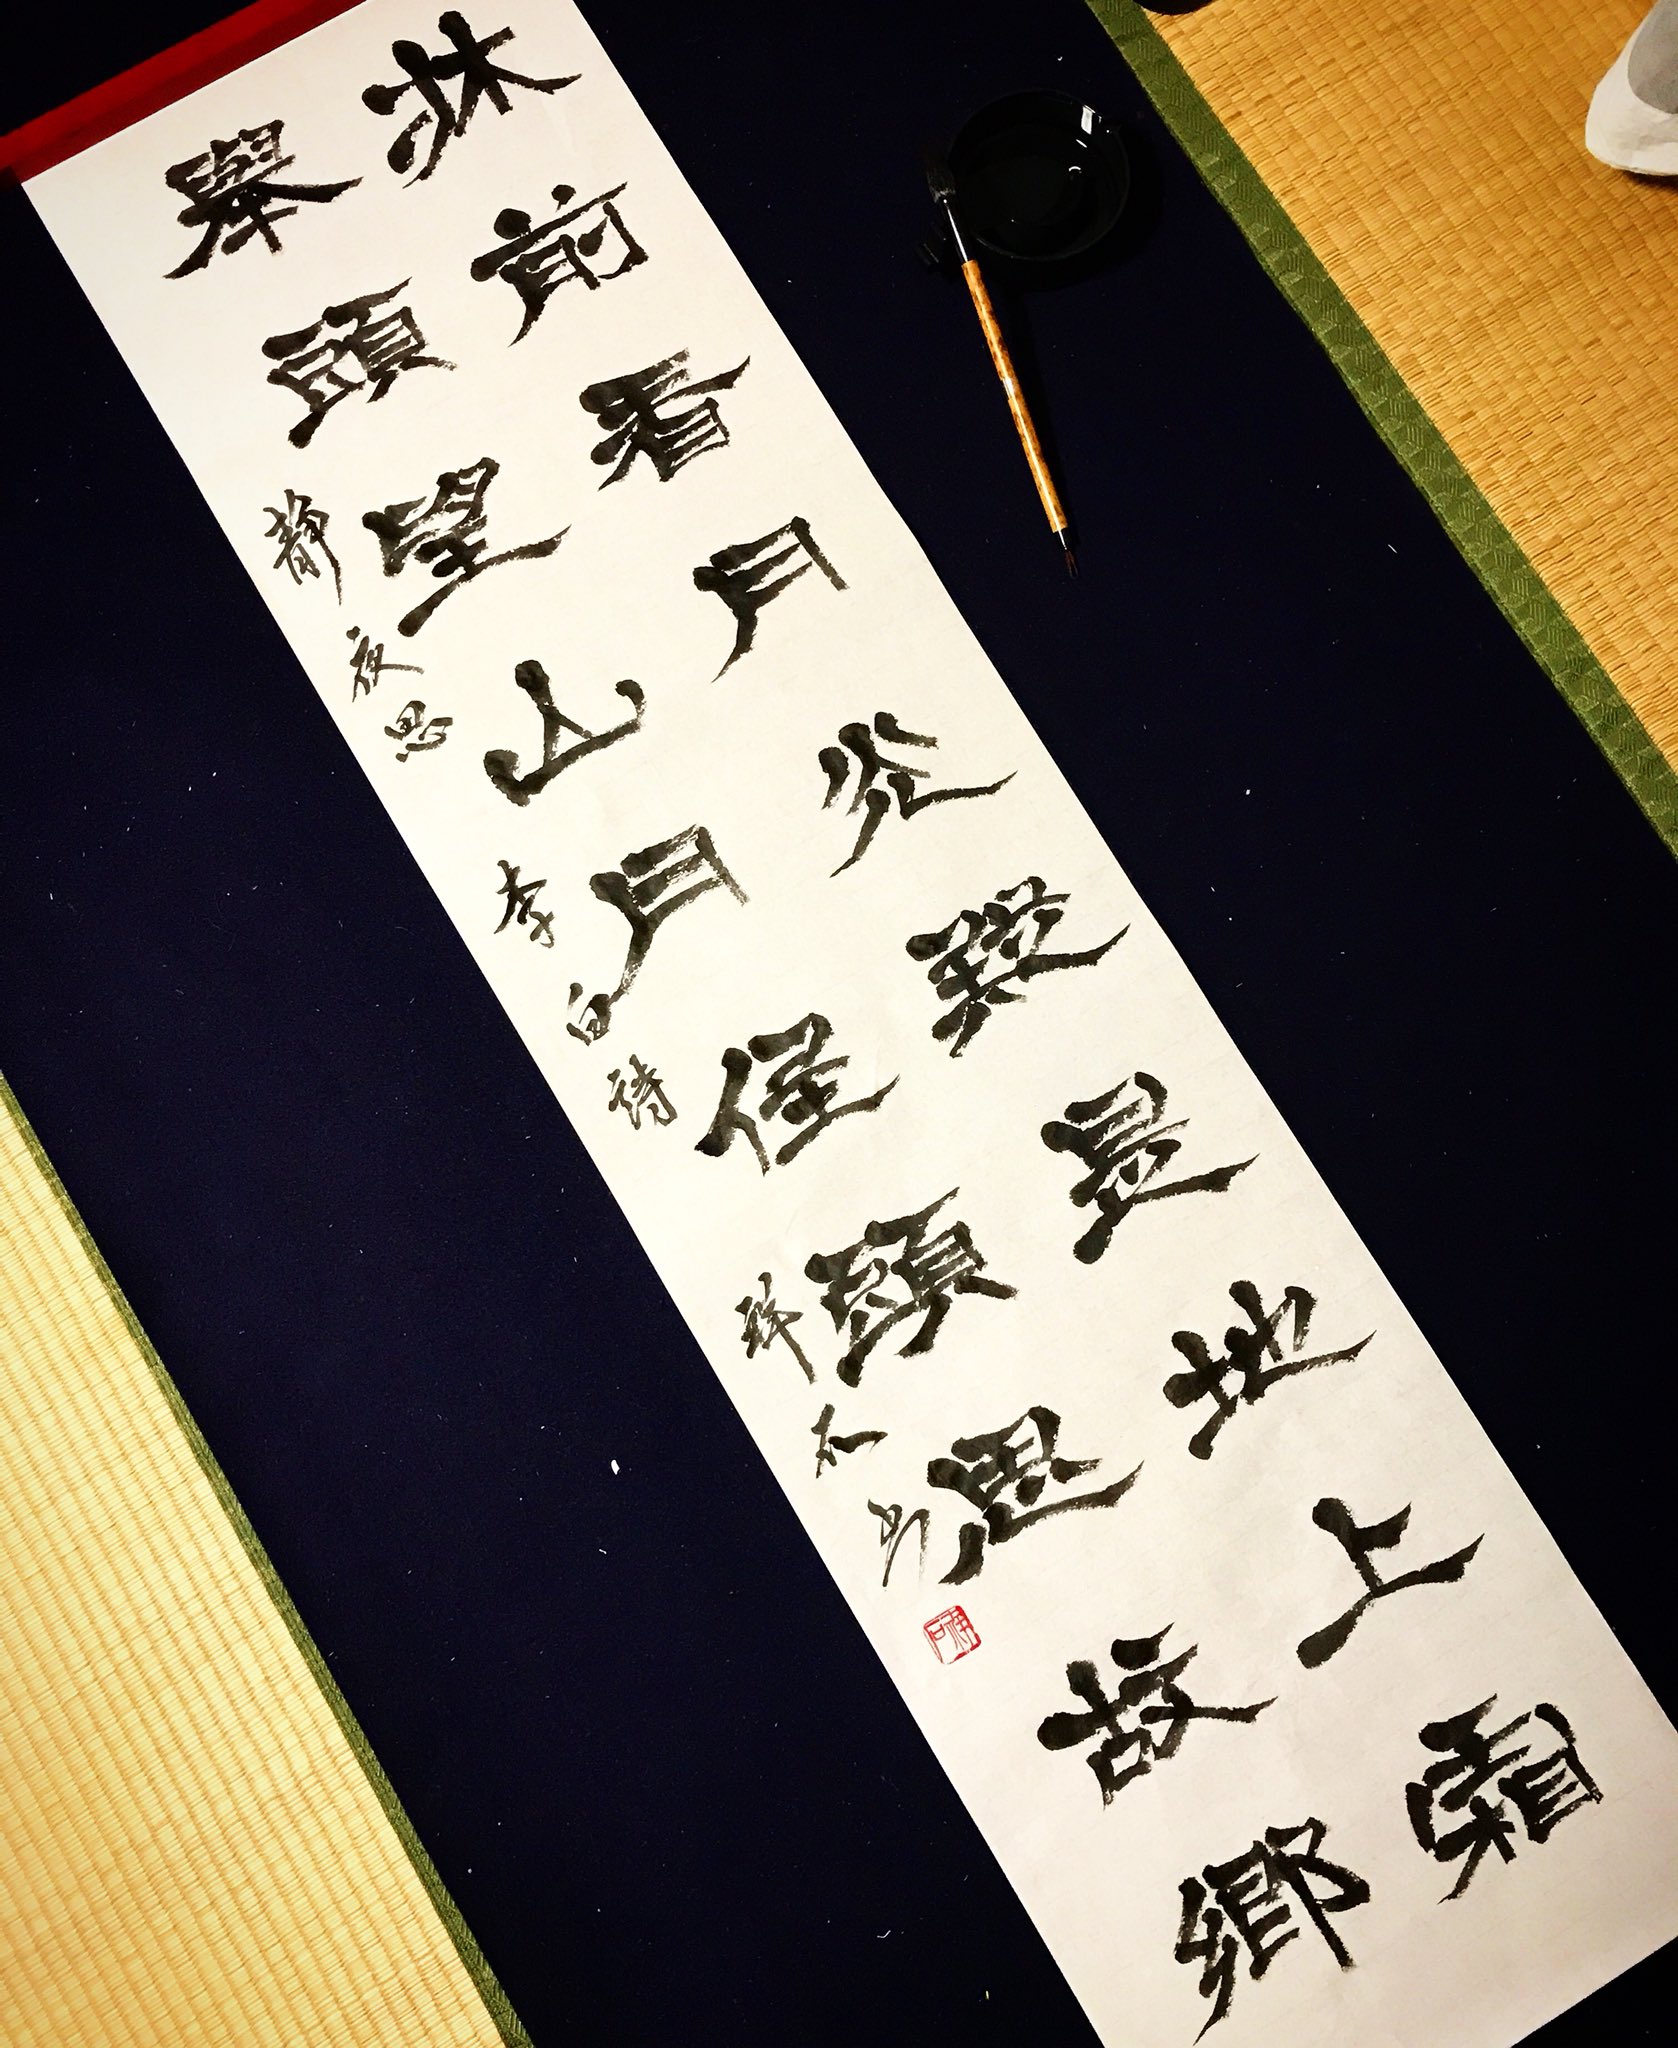 牀前看月光疑是地上霜
舉頭望山月低頭思故鄉
静夜思 李白詩